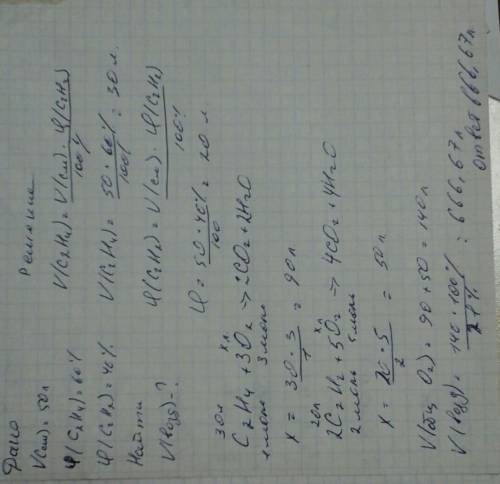 Дано
V(см) = 50л
φ(C2H4) = 60%
φ(C2H2) = 40%
Найти
V(возд) - ?
Решение
V(C2H4) = V(см) · φ(C2H4) / 100%
V(C2H4) = 50 · 60% / 100% = 30 л.
φ(C2H2) = V(см) · φ(C2H2) / 100%
φ = 50 · 40% / 100 = 20 л.
30л xл
C2H4 + 3O2 → 2CO2 + 2H2O
1 моль 3 моль
x = 30 · 3 / 1 = 90 л
20л xл
2C2H2 + 5O2 → 4CO2 + 4H2O
2 моль 5 моль
x = 20 · 5 / 2 = 50 л
V(общ O2) = 90 + 50 = 140 л
V(возд) = 140 · 100% / 21% = 666,67 л
Ответ 666,67 л